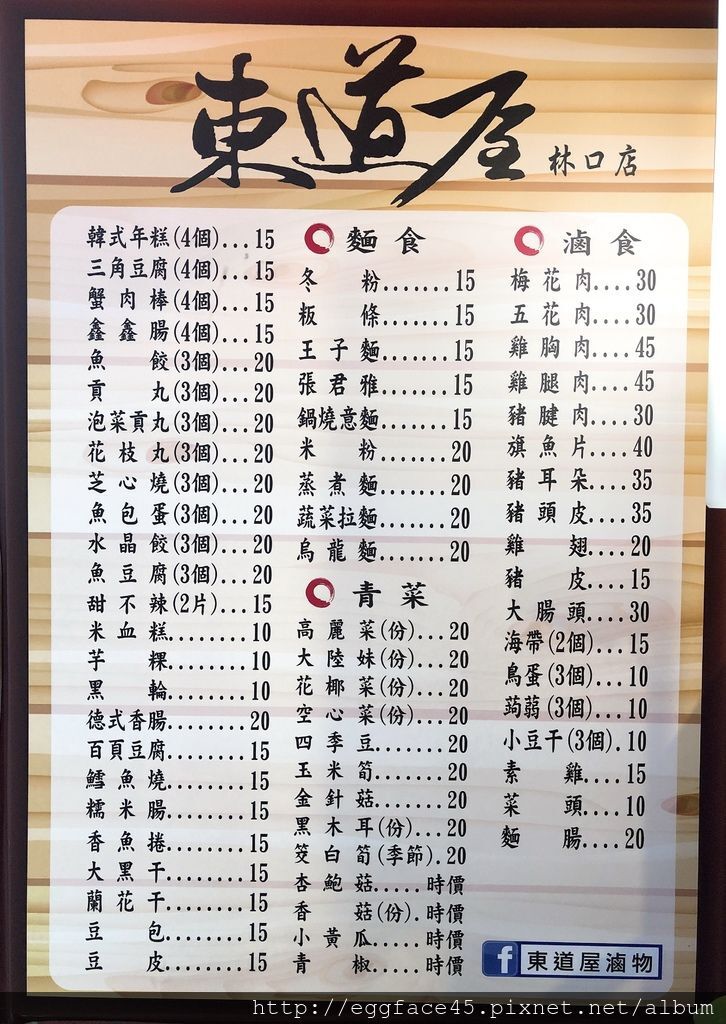 東道屋 林口店
韓式年糕(4個)...15
三角豆腐(4個)...15
蟹肉棒(4個)...15
鑫鑫腸(4個)...15
魚餃(3個)...20
貢丸(3個)...20
泡菜貢丸(3個)...20
花枝丸(3個)...20
芝心燒(3個)...20
魚包蛋(3個)...20
水晶餃(3個)...20
魚豆腐(3個)...20
甜不辣(2片)...15
米血糕.........10
芋粿.........10
黑輪.........10
德式香腸........20
百頁豆腐........15
鱈魚燒........15
糯米腸........15
香魚捲........15
大黑干........15
蘭花干........15
豆包........15
豆皮........15
麵食
冬粉.......15
粄條.......15
王子麵.......15
張君雅.......15
鍋燒意麵.......15
米粉.......20
蒸煮麵.......20
蔬菜拉麵.......20
烏龍麵.......20
青菜
高麗菜(份)...20
大陸妹(份)...20
花椰菜(份)...20
空心菜(份)...20
四季豆.......20
玉米筍.......20
金針菇.......20
黑木耳(份)...20
筊白筍(季節).20
杏鮑菇.....時價
香菇(份).時價
小黃瓜.....時價
青椒.....時價
滷食
梅花肉....30
五花肉....30
雞胸肉....45
雞腿肉....45
豬腱肉....30
旗魚片....40
豬耳朵....35
豬頭皮....35
雞翅....20
豬皮....15
大腸頭....30
海帶(2個)...15
鳥蛋(3個)...10
蒟蒻(3個)...10
小豆干(3個).10
素雞....15
菜頭....10
麵腸....20
f 東道屋滷物
http://eggface45.pixnet.net/album